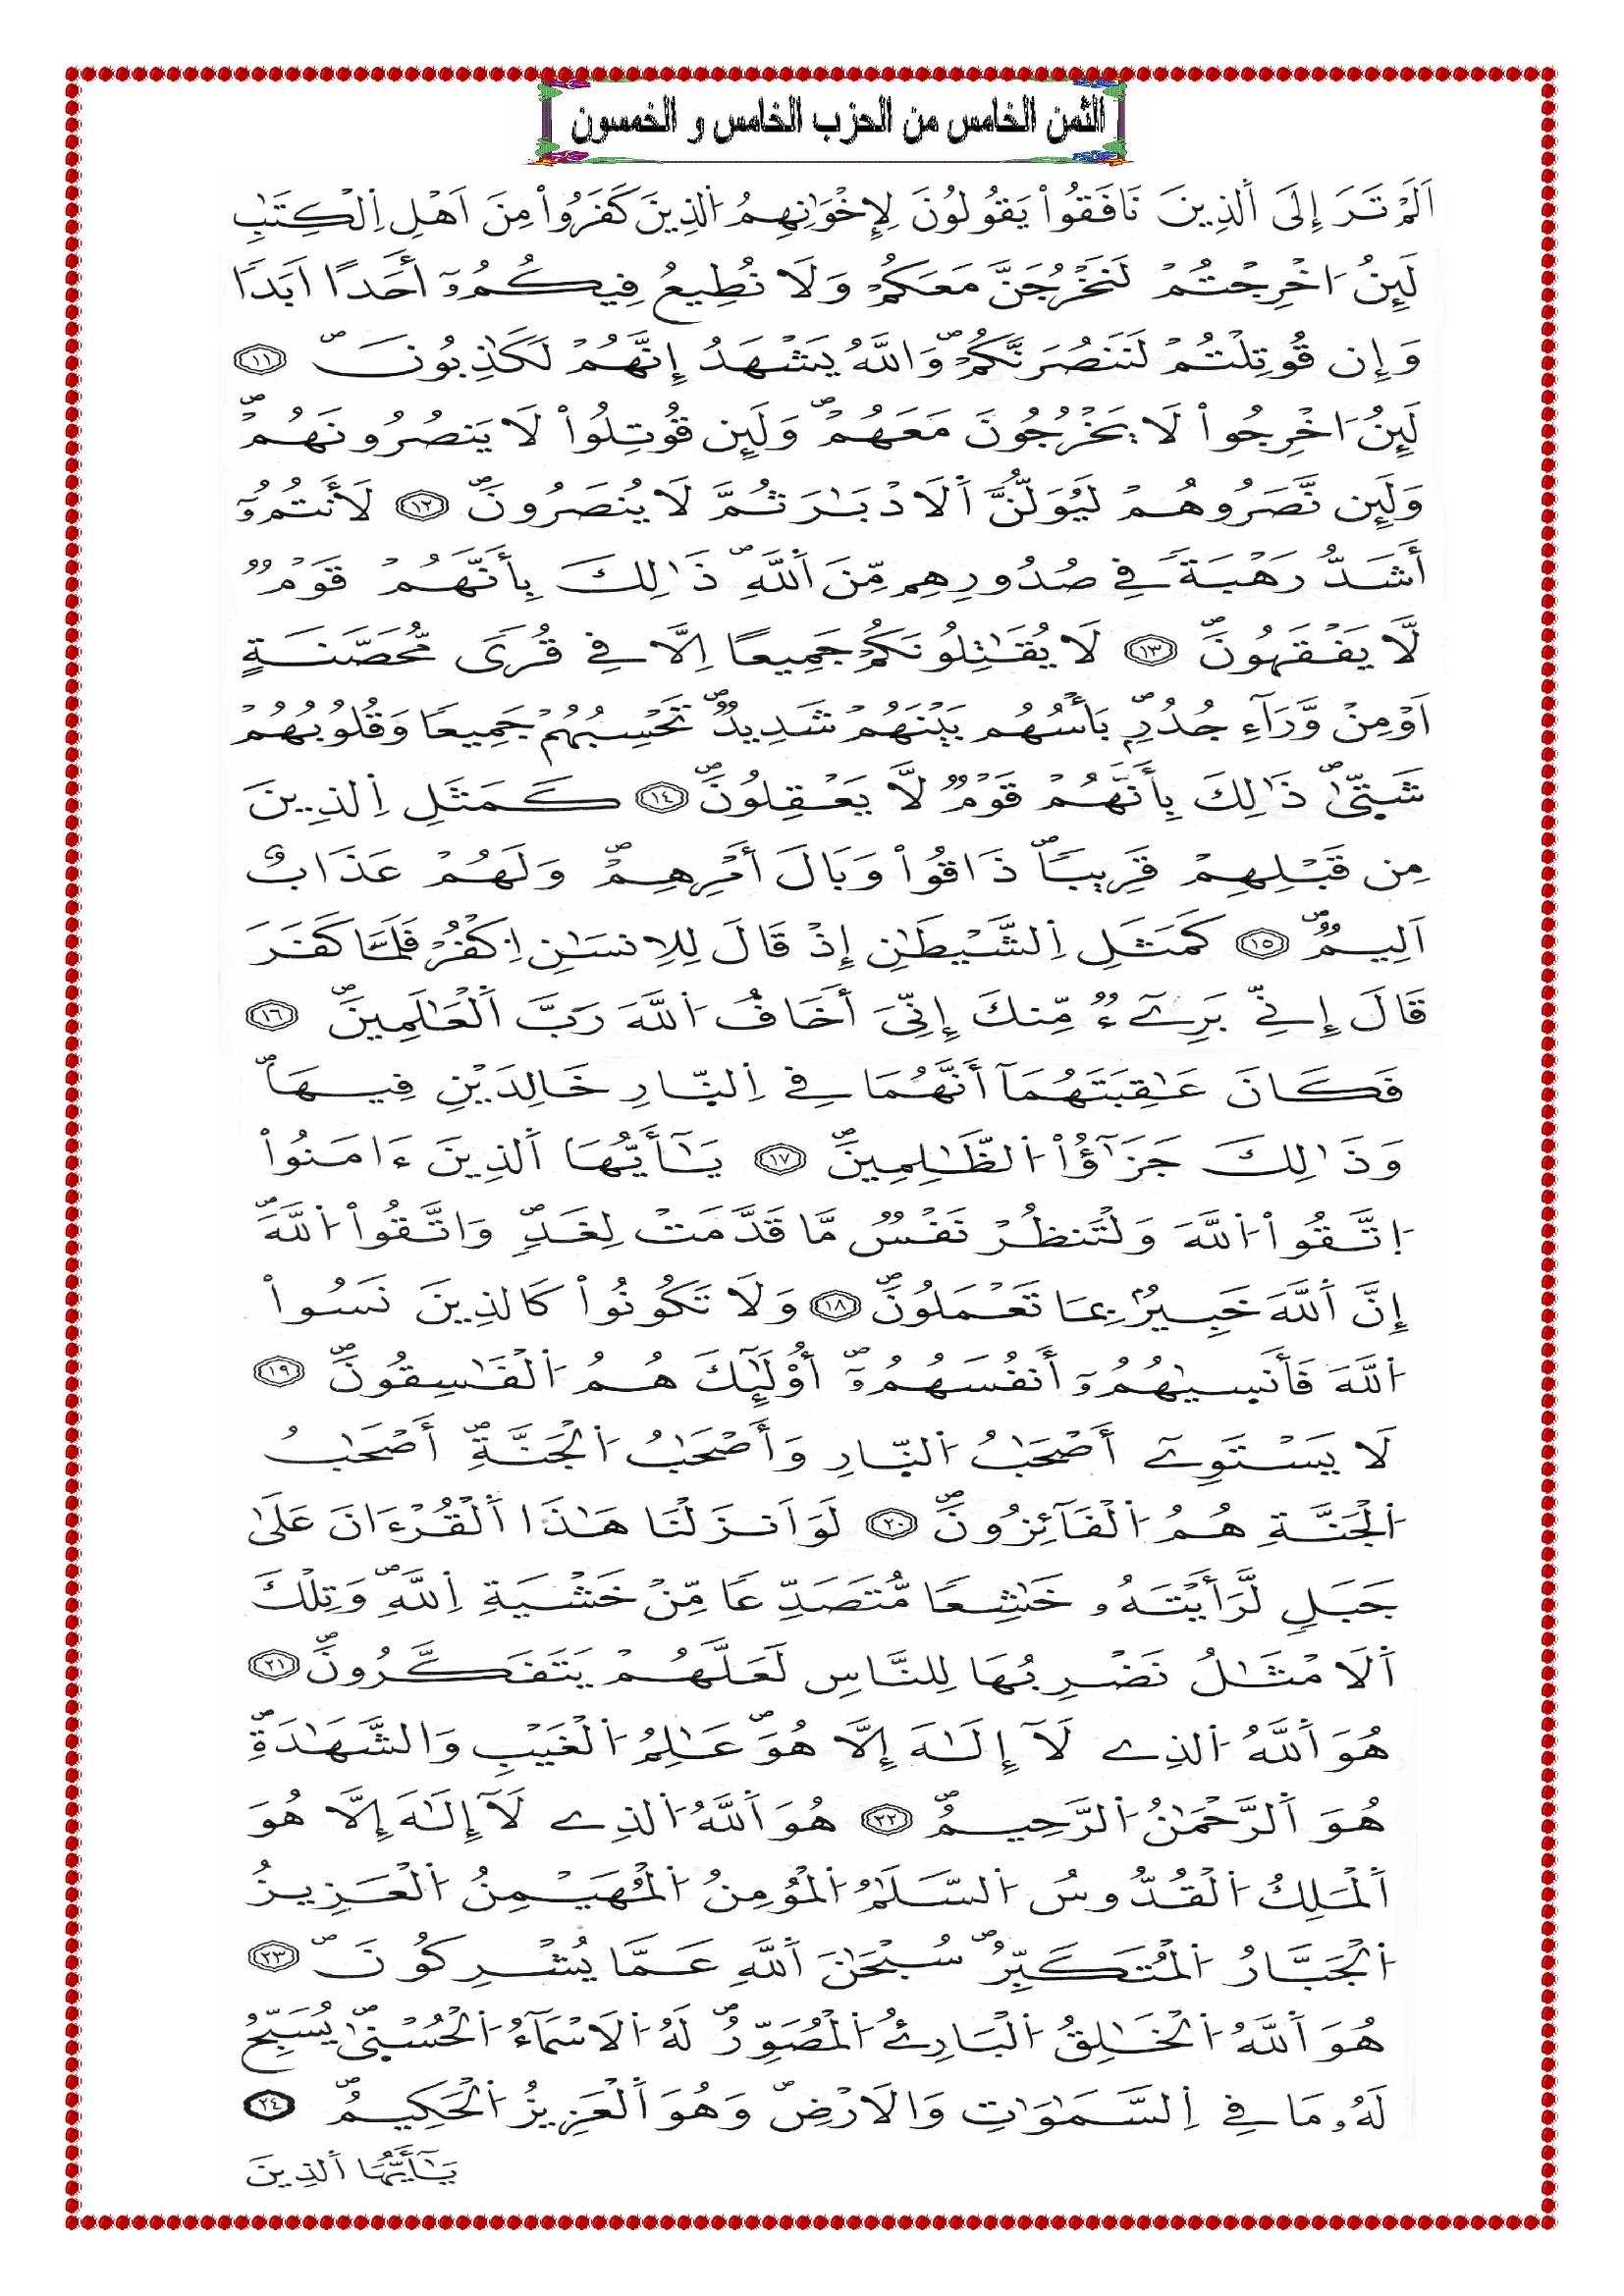 الثمن الخامس من الحزب الخامس و الخمسون
اَلَمْ تَرَ إِلَى اَلذِينَ نَافَقُواْ يَقُولُونَ لِإِخْوَٰنِهِمُ اُلذِينَ كَفَرُواْ مِنَ اَهْلِ اِلْكِتَٰبِ
لَئِنُ اخْرِجْتُمْ لَنَخْرُجَنَّ مَعَكُمْ وَلَا نُطِيعُ فِيكُمُۥٓ أَحَدًا اَبَدًا
وَإِن قُوتِلْتُمْ لَنَنصُرَنَّكُمْۖ وَاللَّهُ يَشْهَدُ إِنَّهُمْ لَكَٰذِبُونَۖ ١١
لَئِنُ اخْرِجُواْ لَا يَخْرُجُونَ مَعَهُمْۖ وَلَئِن قُوتِلُواْ لَا يَنصُرُونَهُمْۖ
وَلَئِن نَّصَرُوهُمْ لَيُوَلُّنَّ اَلَادْبَٰرَ ثُمَّ لَا يُنصَرُونَۖ ١٢ لَأَنتُمُۥٓ
أَشَدُّ رَهْبَةً فِي صُدُورِهِم مِّنَ اَللَّهِۖ ذَٰلِكَ بِأَنَّهُمْ قَوْمٌ
لَّا يَفْقَهُونَۖ ١٣ لَا يُقَٰتِلُونَكُمْ جَمِيعًا اِلَّا فِي قُرًى مُّحَصَّنَةٍ
اَوْ مِنْ وَّرَآءِ جُدُرٍۖ بَأْسُهُم بَيْنَهُمْ شَدِيدٌۖ تَحْسِبُهُمْ جَمِيعًا وَقُلُوبُهُمْ
شَتّ۪ىٰۖ ذَٰلِكَ بِأَنَّهُمْ قَوْمٌ لَّا يَعْقِلُونَۖ ١٤ كَمَثَلِ اِلذِينَ
مِن قَبْلِهِمْ قَرِيبًاۖ ذَاقُواْ وَبَالَ أَمْرِهِمْۖ وَلَهُمْ عَذَابٌ
اَلِيمٌۖ ١٥ كَمَثَلِ اِلشَّيْطَٰنِ إِذْ قَالَ لِلِانسَٰنِ اِكْفُرْ فَلَمَّا كَفَرَ
قَالَ إِنِّي بَرِےٓءٌ مِّنكَ إِنِّيَ أَخَافُ اُللَّهَ رَبَّ اَلْعَٰلَمِينَۖ ١٦
فَكَانَ عَٰقِبَتَهُمَآ أَنَّهُمَا فِي اِلنّ۪ارِ خَٰلِدَيْنِ فِيهَاۖ
وَذَٰلِكَ جَزَٰٓؤُاْ اُلظَّٰلِمِينَۖ ١٧ يَٰٓأَيُّهَا اَلذِينَ ءَامَنُواْ
اُتَّقُواْ اُللَّهَ وَلْتَنظُرْ نَفْسٌ مَّا قَدَّمَتْ لِغَدٍۖ وَاتَّقُواْ اُللَّهَۖ
إِنَّ اَللَّهَ خَبِيرٌۢ بِمَا تَعْمَلُونَۖ ١٨ وَلَا تَكُونُواْ كَالذِينَ نَسُواْ
اُللَّهَ فَأَنس۪يٰهُمُۥٓ أَنفُسَهُمُۥٓۖ أُوْلَٰٓئِكَ هُمُ اُلْفَٰسِقُونَۖ ١٩
لَا يَسْتَوِےٓ أَصْحَٰبُ اُلنّ۪ارِ وَأَصْحَٰبُ اُلْجَنَّةِۖ أَصْحَٰبُ
اُلْجَنَّةِ هُمُ اُلْفَآئِزُونَۖ ٢٠ لَوَ اَنزَلْنَا هَٰذَا اَلْقُرْءَانَ عَلَىٰ
جَبَلٍ لَّرَأَيْتَهُۥ خَٰشِعًا مُّتَصَدِّعًا مِّنْ خَشْيَةِ اِللَّهِۖ وَتِلْكَ
اَلَامْثَٰلُ نَضْرِبُهَا لِلنَّاسِ لَعَلَّهُمْ يَتَفَكَّرُونَۖ ٢١
هُوَ اَللَّهُ اُلذِے لَآ إِلَٰهَ إِلَّا هُوَۖ عَٰلِمُ اُلْغَيْبِ وَالشَّهَٰدَةِۖ
هُوَ اَلرَّحْمَٰنُ اُلرَّحِيمُۖ ٢٢ هُوَ اَللَّهُ اُلذِے لَآ إِلَٰهَ إِلَّا هُوَ
اَلْمَلِكُ اُلْقُدُّوسُ اُلسَّلَٰمُ اُلْمُؤْمِنُ اُلْمُهَيْمِنُ اُلْعَزِيزُ
اُلْجَبَّارُ اُلْمُتَكَبِّرُۖ سُبْحَٰنَ اَللَّهِ عَمَّا يُشْرِكُونَۖ ٢٣
هُوَ اَللَّهُ اُلْخَٰلِقُ اُلْبَارِئُ اُلْمُصَوِّرُۖ لَهُ اُلَاسْمَآءُ اُلْحُسْن۪ىٰۖ يُسَبِّحُ
لَهُۥ مَا فِي اِلسَّمَٰوَٰتِ وَالَارْضِۖ وَهُوَ اَلْعَزِيزُ اُلْحَكِيمُۖ ٢٤
يَٰٓأَيُّهَا اَلذِينَ